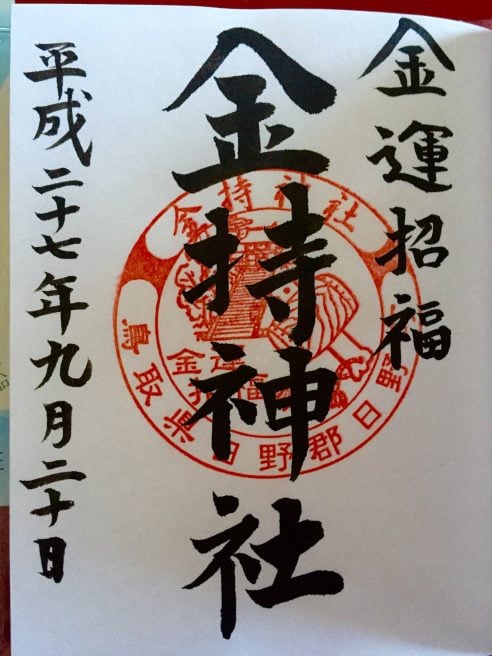 金運招福
金持神社
平成二十七年九月二十日
金持神社
金運
招福
鳥取県日野郡日野